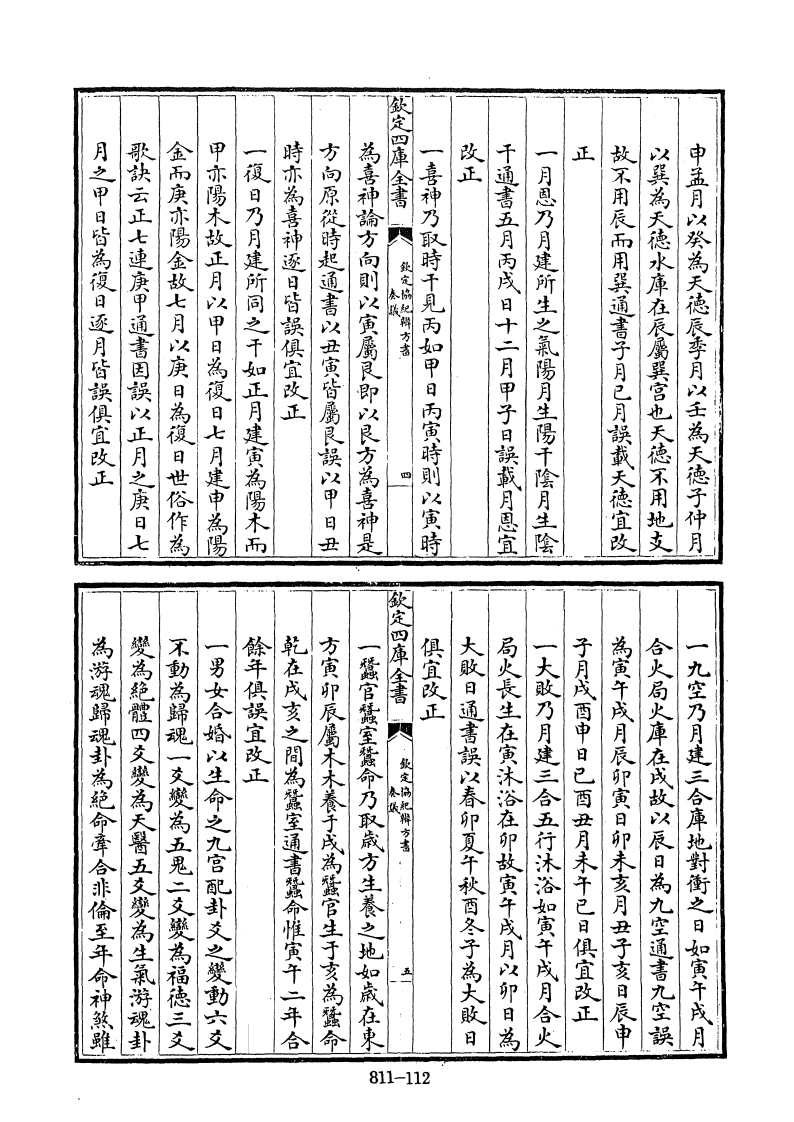 申孟月以癸為天德辰季月以壬為天德子仲月
以巽為天德水庫在辰屬巽宮也天德不用地支
故不用辰而用巽通書子月巳月誤載天德宜改
正
一月恩乃月建所生之氣陽月生陽干陰月生陰
干通書五月丙戌日十二月甲子日誤載月恩宜
改正
一喜神乃取時干見丙如甲日丙寅時則以寅時
欽定四庫全書
欽定協紀辨方書
奏議
四
為喜神論方向則以寅屬艮即以艮方為喜神是
方向原從時起通書以丑寅皆屬艮誤以甲日丑
時亦為喜神逐日皆誤俱宜改正
一復日乃月建所同之干如正月建寅為陽木而
甲亦陽木故正月以甲日為復日七月建申為陽
金而庚亦陽金故七月以庚日為復日世俗作為
歌訣云正七連庚甲通書因誤以正月之庚日七
月之甲日皆為復日逐月皆誤俱宜改正
一九空乃月建三合庫地對衝之日如寅午戌月
合火局火庫在戌故以辰日為九空通書九空誤
為寅午戌月辰卯寅日卯未亥月丑子亥日辰申
子月戌酉申日巳酉丑月未午巳日俱宜改正
一大敗乃月建三合五行沐浴如寅午戌月合火
局火長生在寅沐浴在卯故寅午戌月以卯日為
大敗日通書誤以春卯夏午秋酉冬子為大敗日
俱宜改正
欽定四庫全書
欽定協紀辨方書
奏議
五
一蠶官蠶室蠶命乃取歲方生養之地如歲在東
方寅卯辰屬木木養于戌為蠶官生于亥為蠶命
乾在戌亥之間為蠶室通書蠶命惟寅午二年合
餘年俱誤宜改正
一男女合婚以生命之九宮配卦爻之變動六爻
不動為歸魂一爻變為五鬼二爻變為福德三爻
變為絕體四爻變為天醫五爻變為生氣游魂卦
為游魂歸魂卦為絕命牽合非倫至年命神煞雖
811-112